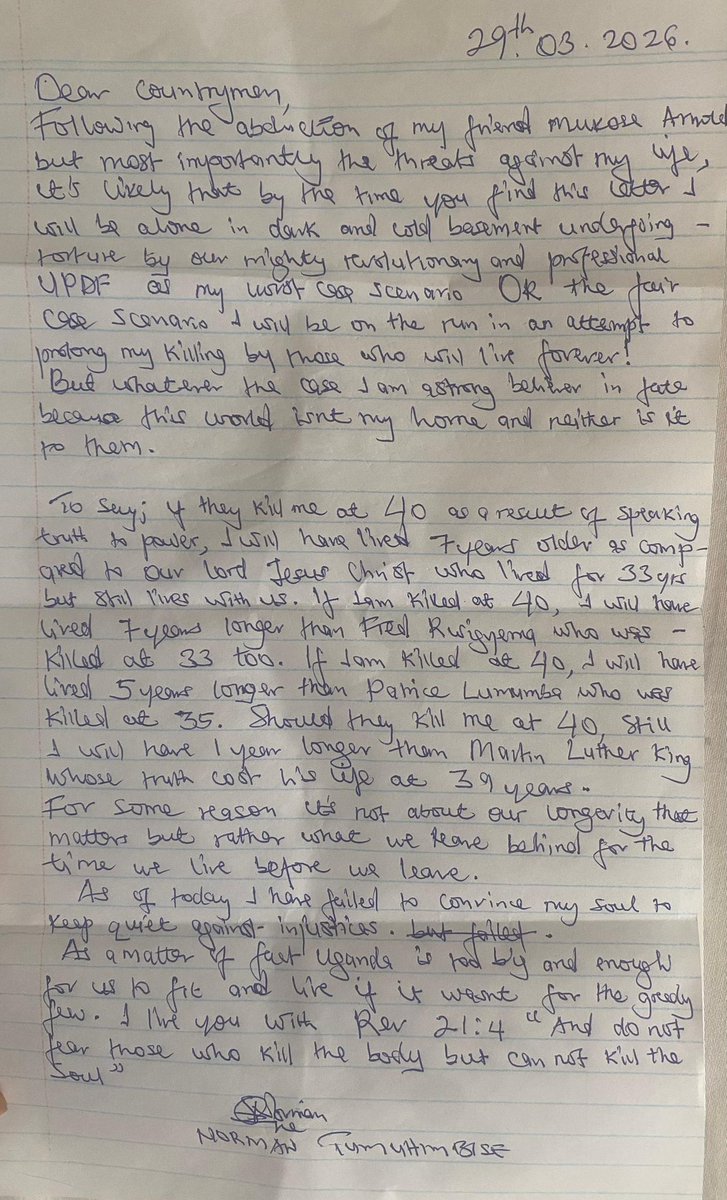 29th. 03. 2026.
Dear Countrymen,
Following the abduction of my friend Mukose Arnold
but most importantly the threats against my life,
it's likely that by the time you find this letter I
will be alone in dark and cold basement undergoing -
torture by our mighty revolutionary and professional
UPDF as my worst case scenario OR the fair
case scenario I will be on the run in an attempt to
prolong my killing by those who will live forever!
But whatever the case I am a strong believer in fate
because this world isnt my home and neither is it
to them.
To say; if they kill me at 40 as a result of speaking
truth to power, I will have lived 7 years older as comp-
ared to our Lord Jesus Christ who lived for 33 yrs
but still lives with us. If I am killed at 40, I will have
lived 7 years longer than Fred Rwigyema who was -
killed at 33 too. If I am killed at 40, I will have
lived 5 years longer than Patrice Lumumba who was
killed at 35. Should they kill me at 40, still
I will have 1 year longer than Martin Luther King
whose truth cost his life at 39 years.
For some reason it's not about our longevity that
matters but rather what we leave behind for the
time we live before we leave.
As of today I have failed to convince my soul to
keep quiet against injustices. but failed.
As a matter of fact Uganda is too big and enough
for us to fit and live if it wasnt for the greedy
few. I live you with Rev 21:4 "And do not
fear those who kill the body but can not kill the
soul"
Norman
NORMAN TUMUHIMBISE